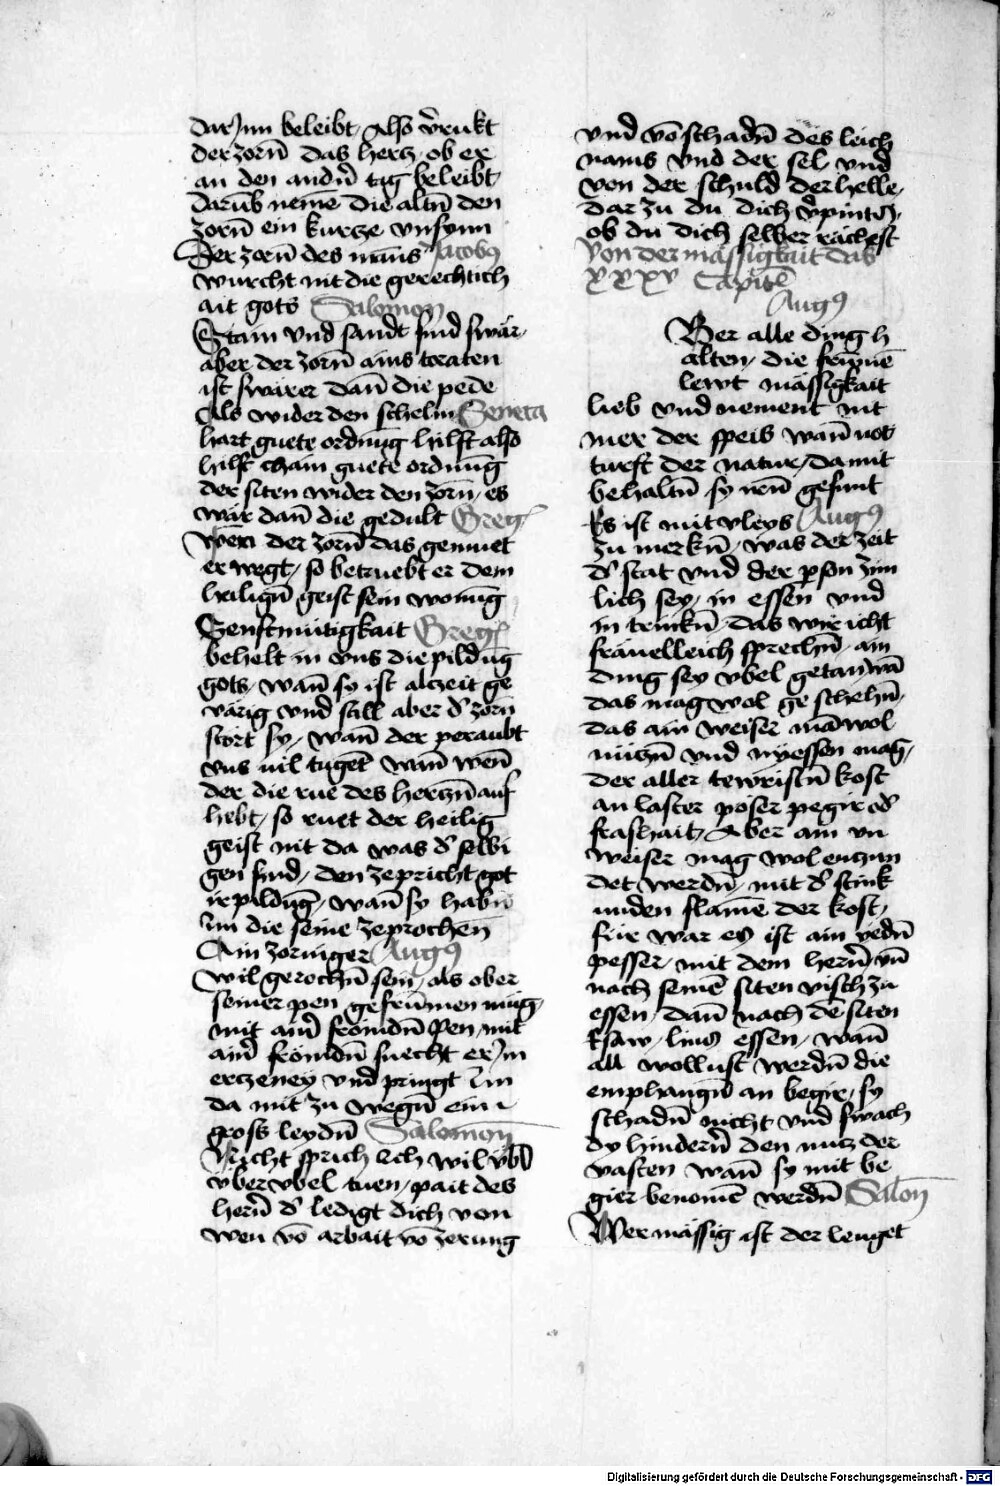 darjnn beleibt, Also v̄rukt
der zorn̄ das hertz, ob er
an den andn̄ tag beleibt,
darūb nemē die altn̄ den
zorn̄ ein kurtze vnsynn
Der zorn̄ des mans Jacobus
wurcht nit die gerechtich
ait gots Salomon
Stain vnd sandt sind swär,
aber der zorn̄ ains toraten
ist swärer dan̄ die pede
Als wider den schelm Seneca
hart guete ordnūg hilft also
hilft chain guete ordnūg
der siten wider den zorn̄, es
wär dan̄ die gedult Greg
Wen der zorn̄ das gemuet
er wegt, so betruebt er dem
heilign̄ geist sein wonūg
Senftmütigkait Greg
behelt in vns die pildūg
gots, wan̄ sy ist alczeit ge
värig vnd still aber d̄ zorn
stört sy, wan̄ der peraubt
vns vil tugēt wan̄ wen̄
der die rue des hertzn̄ auf
hebt, so ruet der heilig
geist nit da was d̄ selbi
gen sind, den zepricht got
ir pildūg, wan̄ sy habn̄
im die seine zeprochen̄
Ain zorniger Augꝰ
wil gerochn̄ sein, als ob er
seiner pen gefrūmen müg,
mit ain̄ frömdn̄ pen, mit
ain̄ frömdn̄ suecht er jm
erczeney vnd pringt im
da mit zu wegn̄ ein
gross leydn̄ Salomon̄
Nicht sprich Ich wil vbl
vber vbel tuen, pait des
hern̄ d̄ ledigt dich von
wen vō arbait vō zerung
vnd vō schadn̄ des leich
nams vnd der sel vnd
von der schuld der helle,
dar zu du dich v̄pintst,
ob du dich selber rächest
Von der mässigkait das
xxxv Capitl̄
Augꝰ
Ber alle ding h
alten, die frūmē
lewt mässigkait
lieb vnd nement nit
mer der speis wan̄ not
turft der natur, da mit
behaltn̄ sy ir gesunt
Es ist mit vleys Augꝰ
zu merkn̄, was der zeit
d̄ stat vnd der pson zim
lich sey, in essen vnd
in trinkn̄, das wir icht
fräuelleich sprechn̄, ain
ding sey vbel getan, wā
das mag wol ge schehn̄,
das ain weiser mā wol
nützn̄ vnd nyessen mag,
der aller tewristn̄ kost
an laster pöser pegir od̄
frashait, Aber ain vn
weiser mag wol enzun
det werdn̄, mit d̄ stink
unden flamē der kost,
für war es ist ain yedn̄
pesser, mit dem hern̄ vn̄
nach seinē siten visch zu
essen, dan̄ nach dē siten
Esaw, lins essen, wan̄
all wollust werdn̄ die
emphangn̄ an begir, sy
schadn̄ nicht vnd swach
dy hindern̄ den nutz der
vasten wan̄ sy mit be
gier benomē werdn̄ Salon̄
Wer mässig ist der lenget
Digitalisierung gefördert durch die Deutsche Forschungsgemeinschaft - DFG